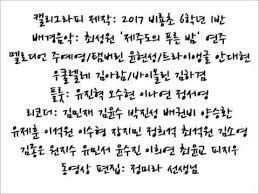 캘리그라피 제작: 2017 비룡초 6학년 1반
배경음악: 최성원 '제주도의 푸른 밤' 연주
멜로디언 주예영/탬버린 윤현성/트라이앵글 안대현
우쿨렐레 김아람/바이올린 김하겸
플룻: 유진혁 오수현 이나연 정서영
리코더: 김민재 김윤수 박진성 배권비 양수환
유제훈 이석원 이수형 장지민 정희석 최석원 김소영
김종은 원지수 유민서 윤수진 이희연 최윤교 피지우
동영상 편집: 정미라 선생님